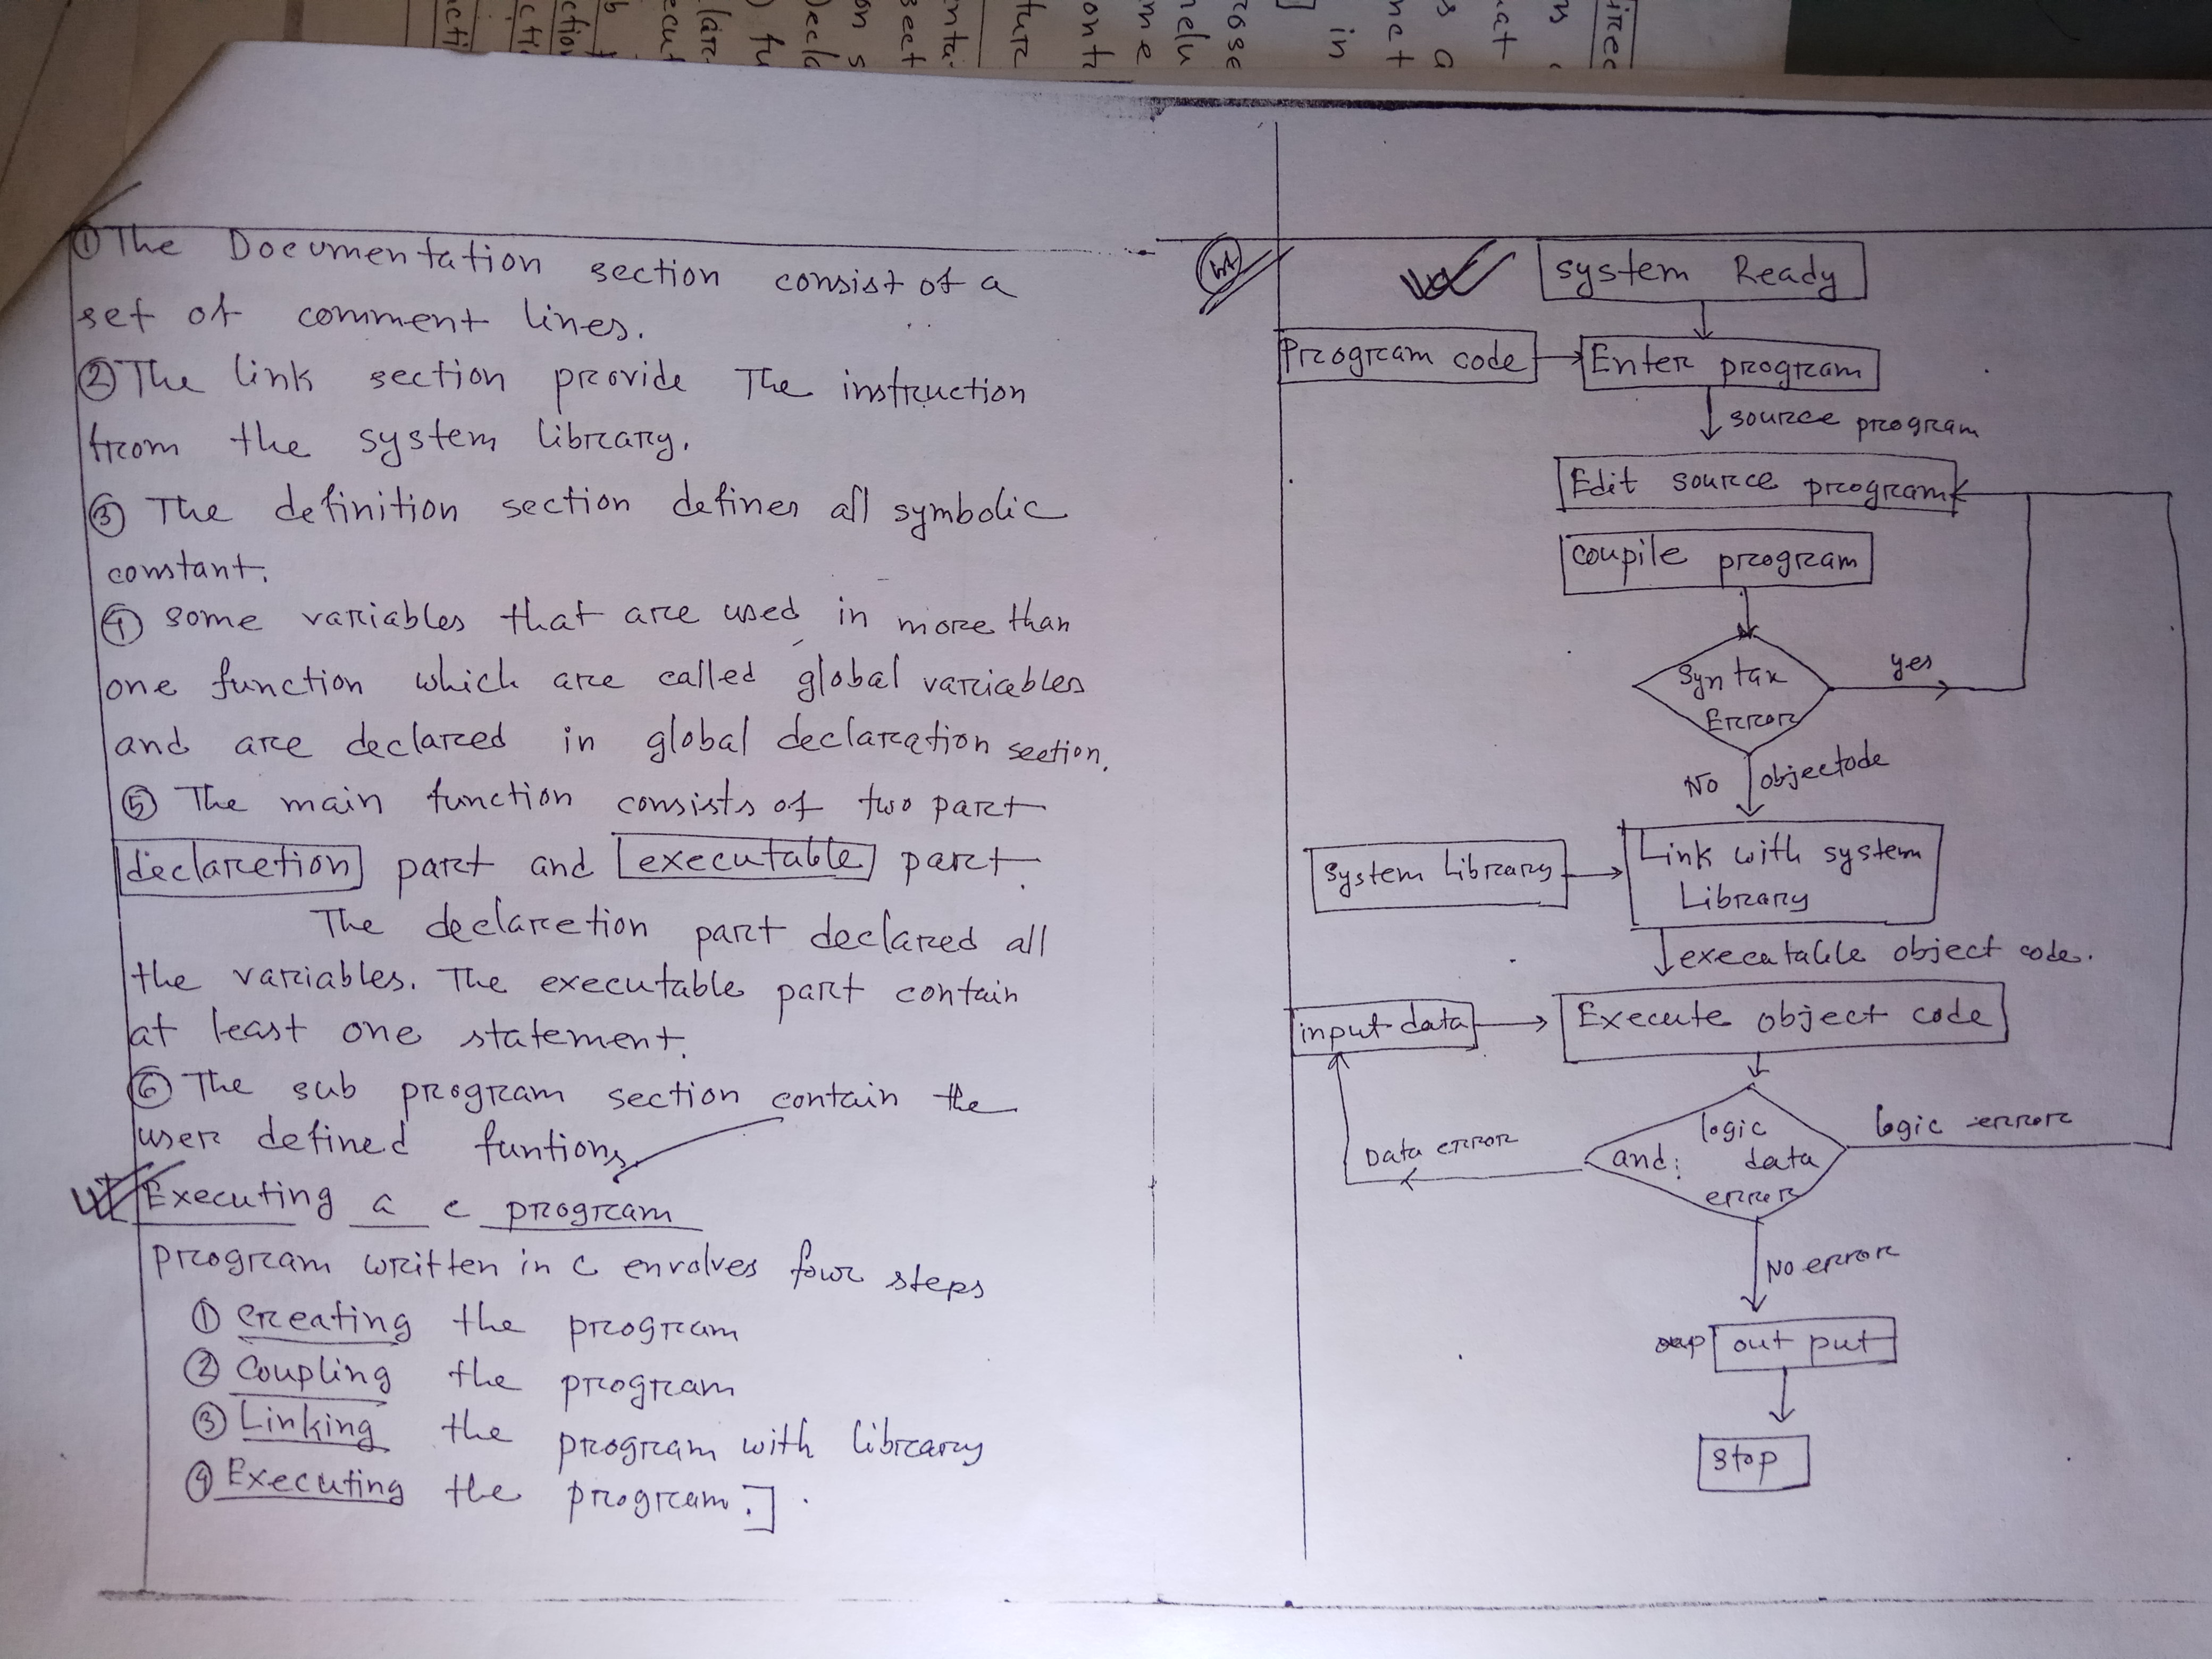 ① The Documentation section consist of a
set of comment lines.
② The link section provide The instruction
from the system library.
③ The definition section defines all symbolic
constant.
④ some variables that are used in more than
one function which are called global variables
and are declared in global declaration section.
⑤ The main function consists of two part
declaretion part and executable part.
The declaretion part declared all
the variables. The executable part contain
at least one statement.
⑥ The sub program section contain the
user defined funtions
Executing a c program
program written in c envolves four steps
① creating the program
② Coupling the program
③ Linking the program with library
④ Executing the program.]
system Ready
Program code
Enter program
source program
Edit source program
coupile program
Syntax
Error
yes
No
objectode
System Library
Link with system
Library
executable object code.
input data
Execute object code
logic
and: data
error
logic error
Data error
No error
out put
stop